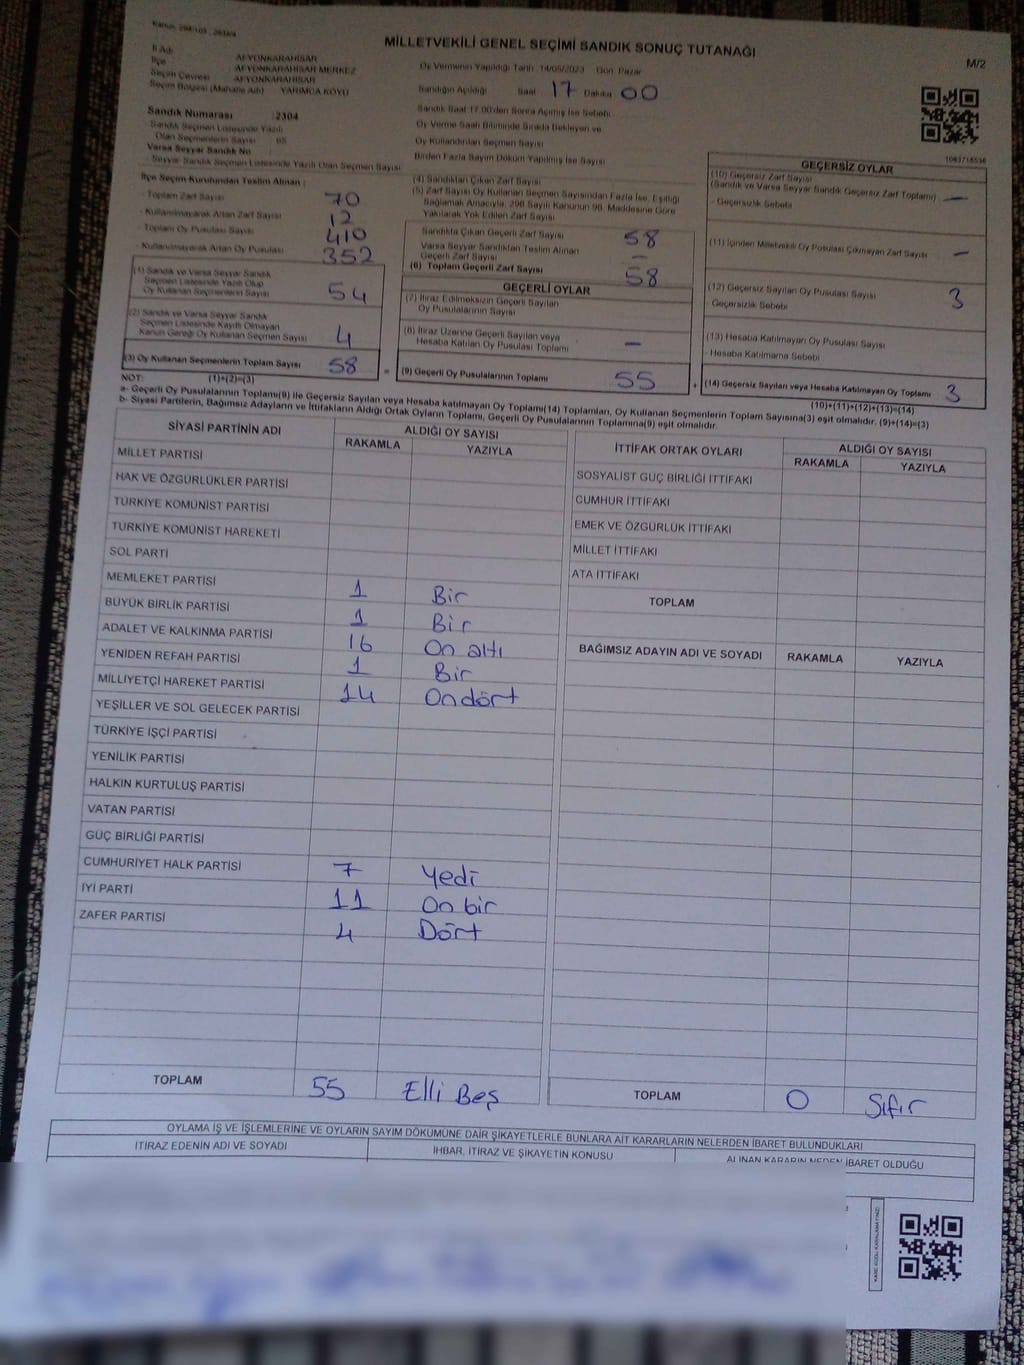 MİLLETVEKİLİ GENEL SEÇİMİ SANDIK SONUÇ TUTANAĞI
M/2
İl Adı AFYONKARAHİSAR
İlçe AFYONKARAHİSAR MERKEZ
Seçim Çevresi AFYONKARAHİSAR
Seçim Bölgesi (Mahalle Adı) YARIMCA KÖYÜ
Oy Vermenin Yapıldığı Tarih 14/05/2023 Gün Pazar
Sandığın Açıldığı Saat 17 Dakika 00
Sandık Numarası 2304
Sandık Seçmen Listesinde Yazılı
Olan Seçmenlerin Sayısı 65
Varsa Seyyar Sandık No
Seyyar Sandık Seçmen Listesinde Yazılı Olan Seçmen Sayısı
Sandık Saat 17.00'den Sonra Açılmış İse Sebebi
Oy Verme Saati Bitiminde Sırada Bekleyen ve
Oy Kullandırılan Seçmen Sayısı
Birden Fazla Sayım Döküm Yapılmış İse Sayısı
İlçe Seçim Kurulundan Teslim Alınan :
- Toplam Zarf Sayısı 70
- Kullanılmayarak Artan Zarf Sayısı 12
- Toplam Oy Pusulası Sayısı 410
- Kullanılmayarak Artan Oy Pusulası 352
(1) Sandık ve Varsa Seyyar Sandık
Seçmen Listesinde Yazılı Olup
Oy Kullanan Seçmenlerin Sayısı 54
(2) Sandık ve Varsa Seyyar Sandık
Seçmen Listesinde Kayıtlı Olmayan
Kanun Gereği Oy Kullanan Seçmen Sayısı 4
(3) Oy Kullanan Seçmenlerin Toplam Sayısı 58
(4) Sandıktan Çıkan Zarf Sayısı
(5) Zarf Sayısı Oy Kullanan Seçmen Sayısından Fazla İse, Eşitliği
Sağlamak Amacıyla, 298 Sayılı Kanunun 98. Maddesine Göre
Yakılarak Yok Edilen Zarf Sayısı
Sandıkta Çıkan Geçerli Zarf Sayısı 58
Varsa Seyyar Sandıktan Teslim Alınan
Geçerli Zarf Sayısı –
(6) Toplam Geçerli Zarf Sayısı 58
GEÇERLİ OYLAR
(7) İtiraz Edilmeksizin Geçerli Sayılan
Oy Pusulalarının Sayısı
(8) İtiraz Üzerine Geçerli Sayılan veya
Hesaba Katılan Oy Pusulası Toplamı –
= (9) Geçerli Oy Pusulalarının Toplamı 55
1083715536
GEÇERSİZ OYLAR
(10) Geçersiz Zarf Sayısı
(Sandık ve Varsa Seyyar Sandık Geçersiz Zarf Toplamı) –
- Geçersizlik Sebebi
(11) İçinden Milletvekili Oy Pusulası Çıkmayan Zarf Sayısı –
(12) Geçersiz Sayılan Oy Pusulası Sayısı 3
- Geçersizlik Sebebi
(13) Hesaba Katılmayan Oy Pusulası Sayısı
- Hesaba Katılmama Sebebi
+ (14) Geçersiz Sayılan veya Hesaba Katılmayan Oy Toplamı 3
NOT: (1)+(2)=(3)
(10)+(11)+(12)+(13)=(14)
a- Geçerli Oy Pusulalarının Toplamı(9) ile Geçersiz Sayılan veya Hesaba katılmayan Oy Toplamı(14) Toplamları, Oy Kullanan Seçmenlerin Toplam Sayısına(3) eşit olmalıdır. (9)+(14)=(3)
b- Siyasi Partilerin, Bağımsız Adayların ve İttifakların Aldığı Ortak Oyların Toplamı, Geçerli Oy Pusulalarının Toplamına(9) eşit olmalıdır.
SİYASİ PARTİNİN ADI ALDIĞI OY SAYISI
RAKAMLA YAZIYLA
MİLLET PARTİSİ
HAK VE ÖZGÜRLÜKLER PARTİSİ
TÜRKİYE KOMÜNİST PARTİSİ
TÜRKİYE KOMÜNİST HAREKETİ
SOL PARTİ
MEMLEKET PARTİSİ 1 Bir
BÜYÜK BİRLİK PARTİSİ 1 Bir
ADALET VE KALKINMA PARTİSİ 16 On altı
YENİDEN REFAH PARTİSİ 1 Bir
MİLLİYETÇİ HAREKET PARTİSİ 14 Ondört
YEŞİLLER VE SOL GELECEK PARTİSİ
TÜRKİYE İŞÇİ PARTİSİ
YENİLİK PARTİSİ
HALKIN KURTULUŞ PARTİSİ
VATAN PARTİSİ
GÜÇ BİRLİĞİ PARTİSİ
CUMHURİYET HALK PARTİSİ 7 Yedi
İYİ PARTİ 11 On bir
ZAFER PARTİSİ 4 Dört
TOPLAM 55 Elli Beş
İTTİFAK ORTAK OYLARI ALDIĞI OY SAYISI
RAKAMLA YAZIYLA
SOSYALİST GÜÇ BİRLİĞİ İTTİFAKI
CUMHUR İTTİFAKI
EMEK VE ÖZGÜRLÜK İTTİFAKI
MİLLET İTTİFAKI
ATA İTTİFAKI
TOPLAM
BAĞIMSIZ ADAYIN ADI VE SOYADI RAKAMLA YAZIYLA
TOPLAM 0 Sıfır
OYLAMA İŞ VE İŞLEMLERİNE VE OYLARIN SAYIM DÖKÜMÜNE DAİR ŞİKAYETLERLE BUNLARA AİT KARARLARIN NELERDEN İBARET BULUNDUKLARI
İTİRAZ EDENİN ADI VE SOYADI İHBAR, İTİRAZ VE ŞİKAYETİN KONUSU ALINAN KARARIN NEDEN İBARET OLDUĞU